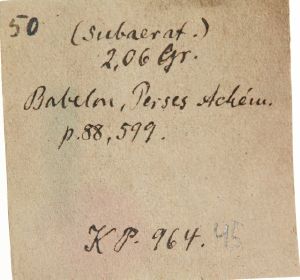 50
(subaerat.)
2,06 Gr.
Babelon, Perses Achém.
p. 88, 599.
K P. 964. 45